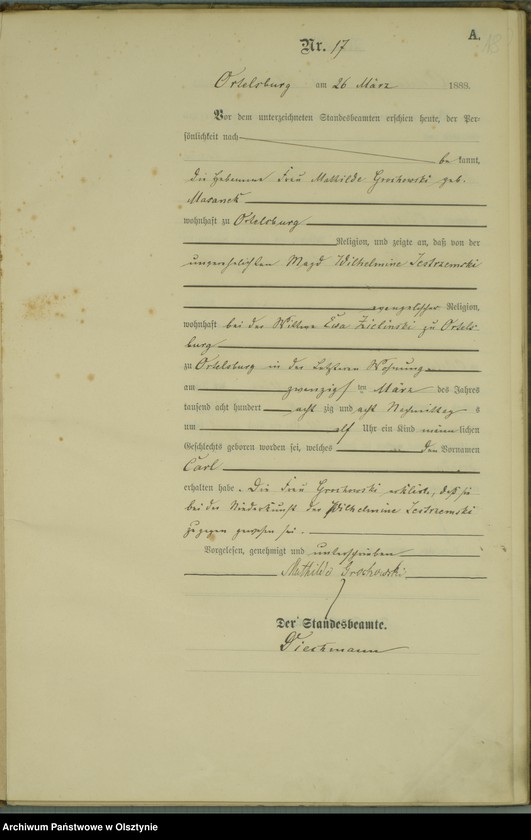 A.
Nr. 17
Ortelsburg am 26 März 1888.
Vor dem unterzeichneten Standesbeamten erschien heute, der Per-
sönlichkeit nach
be kannt,
die Hebamme Frau Mathilde Grochowski geb.
Masanek
wohnhaft zu Ortelsburg
Religion, und zeigte an, daß von der
unverehelichten Magd Wilhelmine Jestrzemski
evangelischer Religion,
wohnhaft bei der Wittwe Eva Zielinski zu Ortels-
burg
zu Ortelsburg in der Letzteren Wohnung
am zwanzigsten März des Jahres
tausend acht hundert acht zig und acht Nachmittag s
um elf Uhr ein Kind männlichen
Geschlechts geboren worden sei, welches den Vornamen
Carl
erhalten habe. Die Frau Grochowski erklärte, daß sie
bei der Niederkunft der Wilhelmine Jestrzemski
zugegen gewesen sei.
Vorgelesen, genehmigt und unterschrieben
Mathilde Grochowski
Der Standesbeamte.
Archiwum Państwowe w Olsztynie